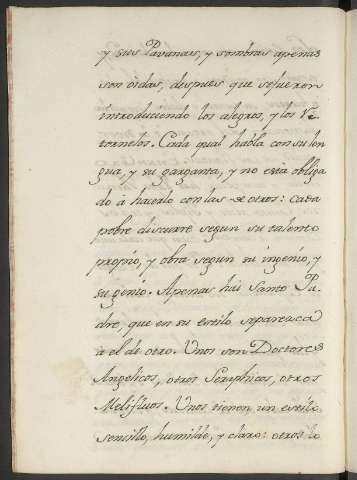 y sus Pavanas, y sombras apenas
son oidas, despues que sefueron
introduciendo los alegros, y los Ri
tornelos. Cada qual habla consu len
gua, y su garganta, y no esta obliga
do à hacerlo con las de otros: cada
pobre discurre segun su talento
proprio, y obra segun su ingenio, y
su genio. Apenas hai Santo Pa
dre, que en su estilo separezca
à el de otro. Unos son Doctores
Angelicos, otros Seraphicos, otros
Melifluos. Unos tienen un estilo
sensillo, humilde, y claro: otros lo